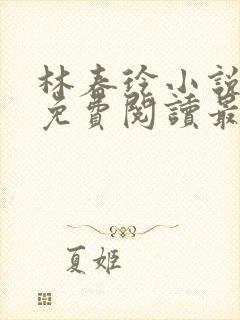 林春彾小說
免費閱讀最
夏姬